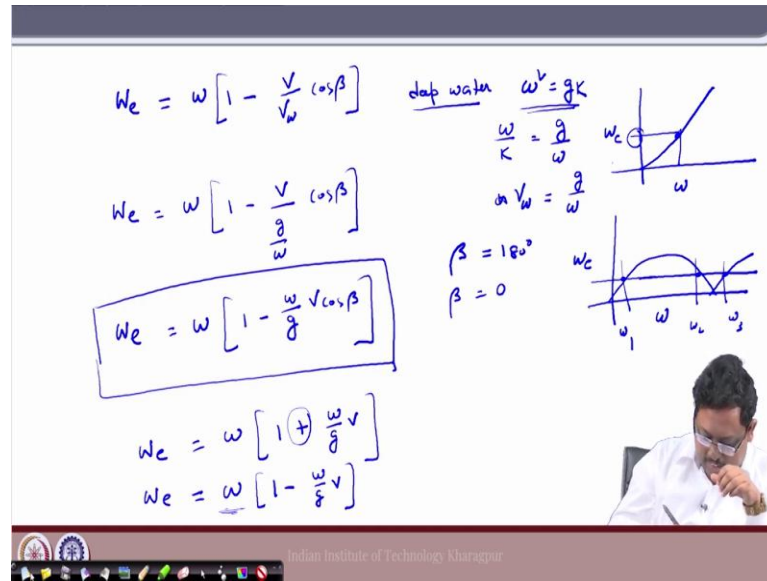 We = ω [1 - V/Vω cosβ]
We = ω [1 - V/(g/ω) cosβ]
We = ω [1 - ω/g V cosβ]
We = ω [1 + ω/g V]
We = ω [1 - ω/g V]
deep water ω² = gK
ω/K = g/ω
or Vω = g/ω
β = 180°
β = 0
We
ω
We
ω1 ω ω2 ω3
Indian Institute of Technology Kharagpur